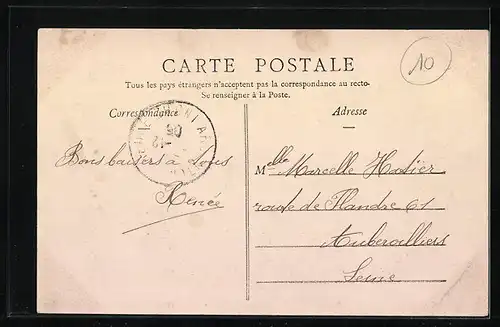 CARTE POSTALE
10
Tous les pays étrangers n'acceptent pas la correspondance au recto-
Se renseigner à la Poste.
Correspondance
Adresse
Bons baisers à tous
Renée
Melle Marcelle
route de Flandre 61
Aubervilliers
Seine